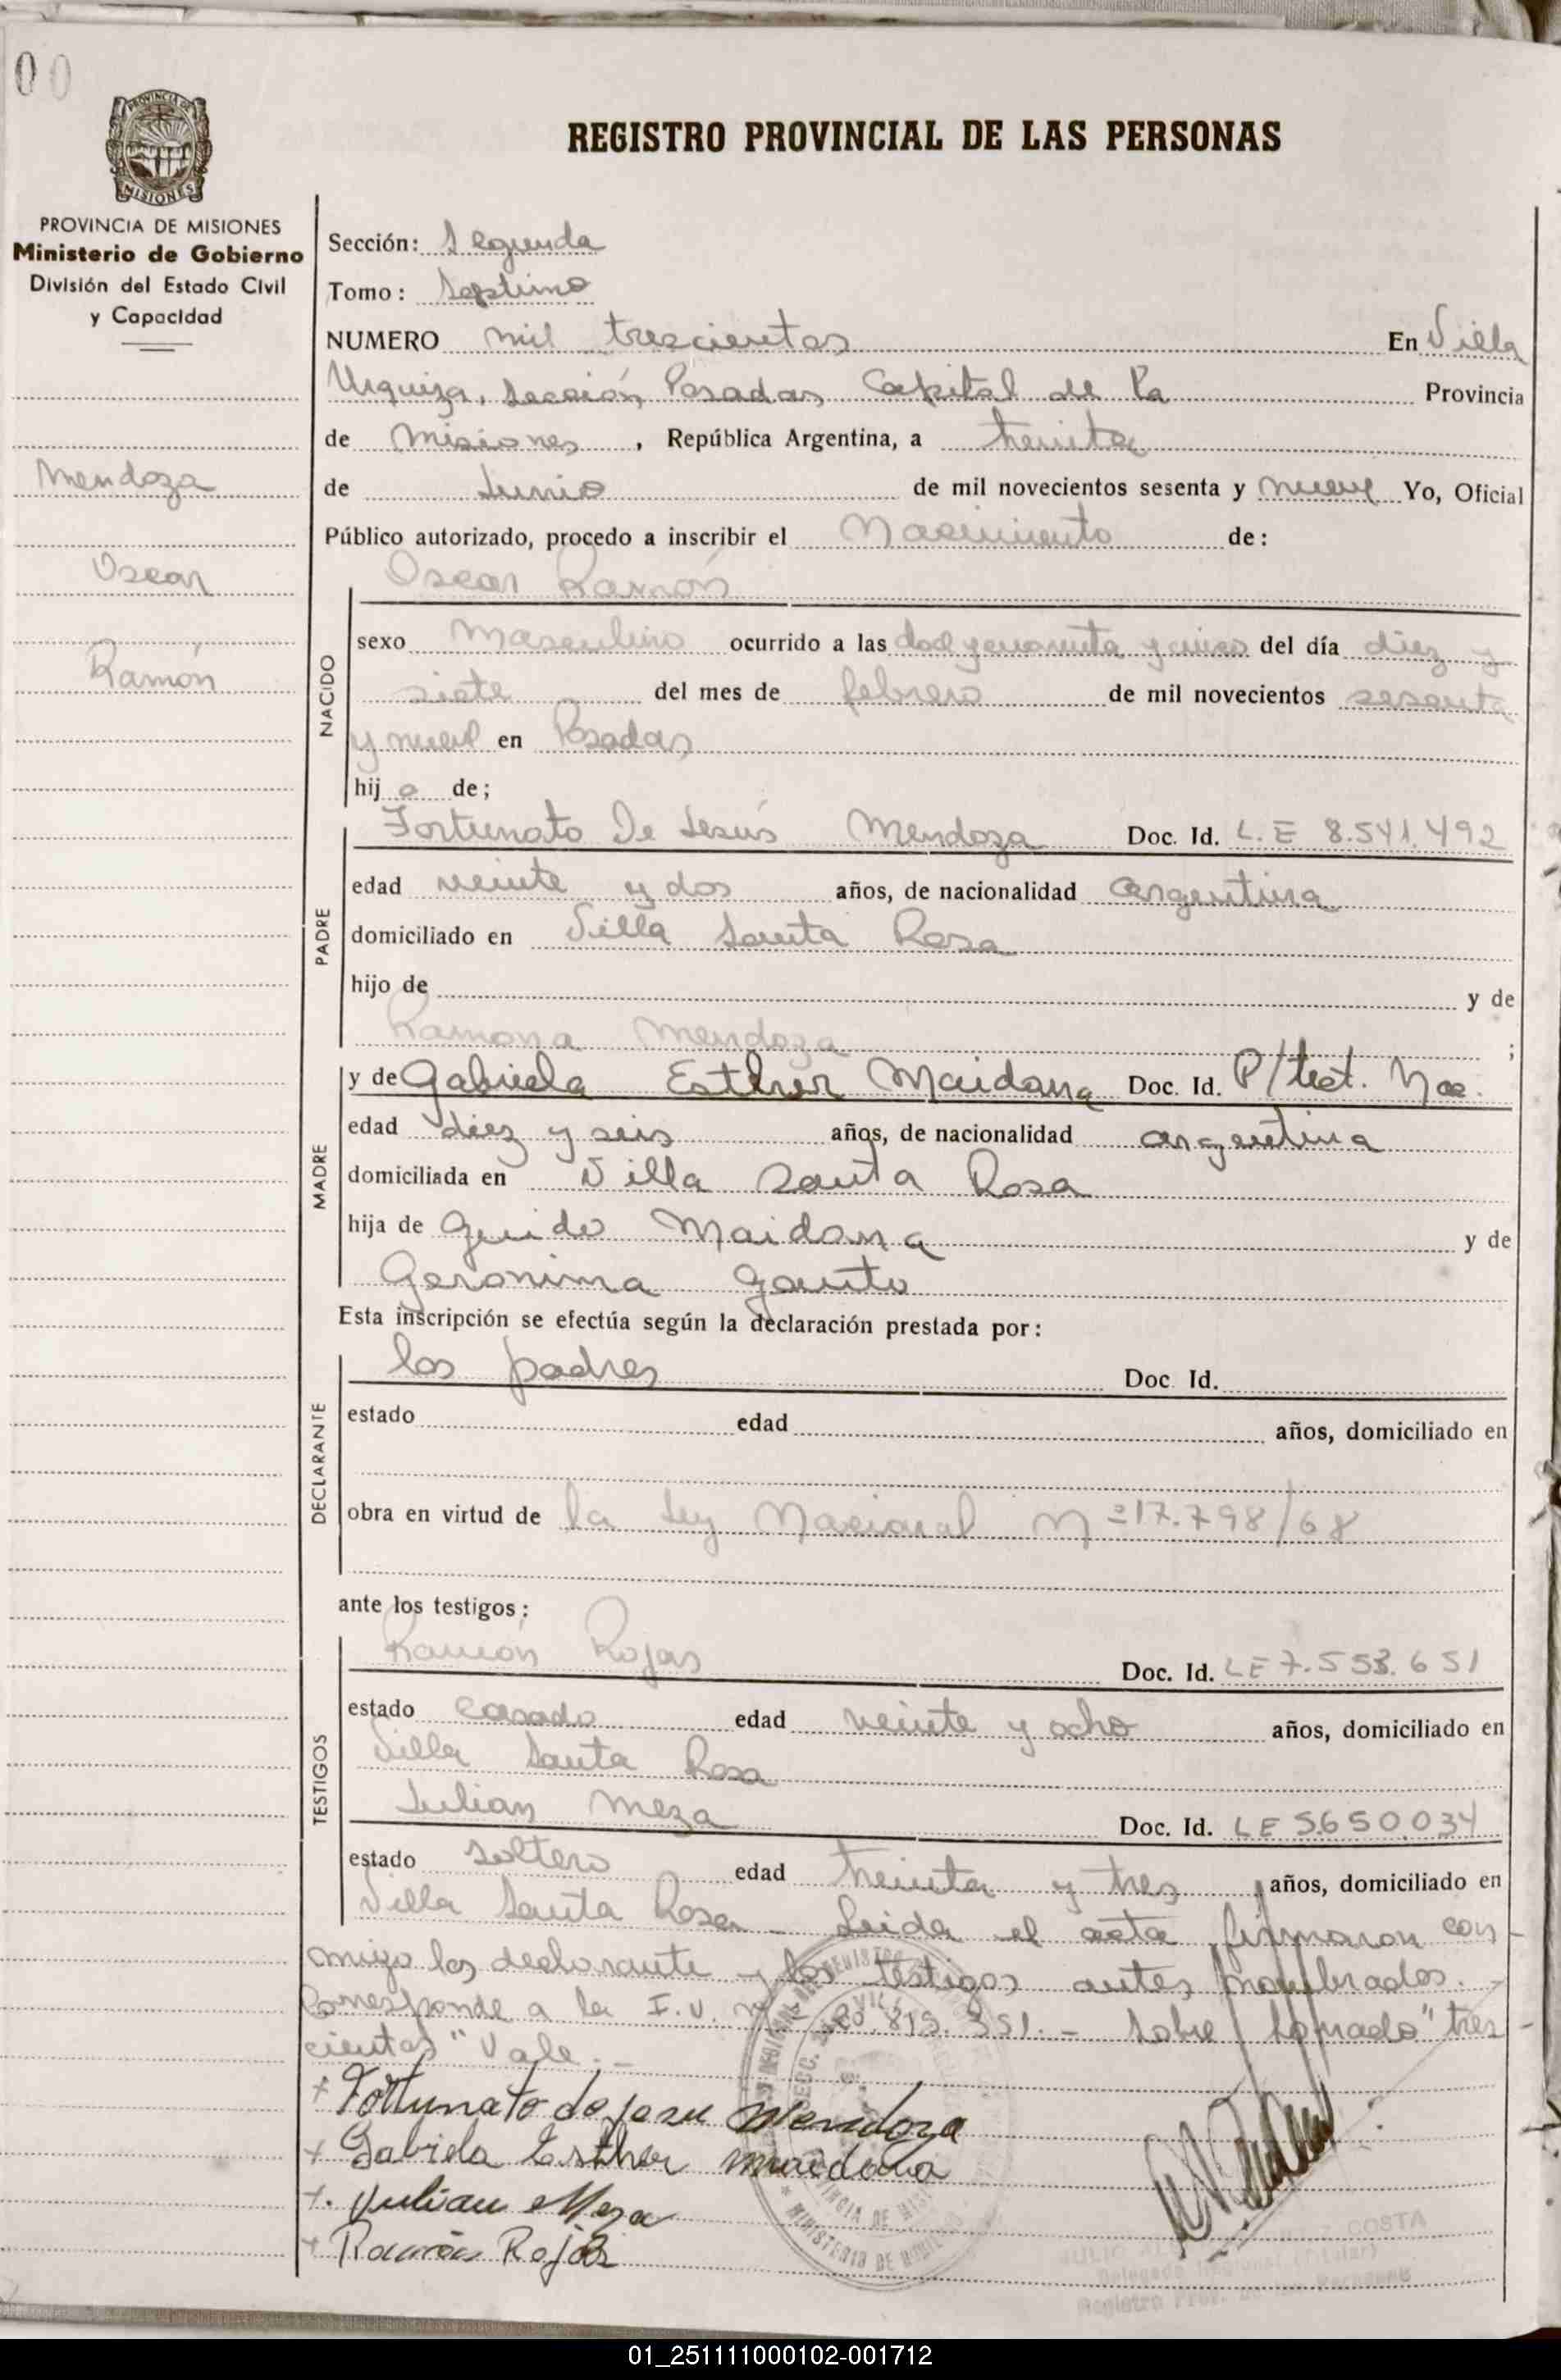 00
PROVINCIA DE MISIONES
REGISTRO PROVINCIAL DE LAS PERSONAS
PROVINCIA DE MISIONES
Ministerio de Gobierno
División del Estado Civil
y Capacidad
Mendoza
Oscar
Ramón
Sección: Segunda
Tomo: Septimo
NUMERO mil trescientos En Villa
Urquiza, sección Posadas Capital de la Provincia
de Misiones, República Argentina, a treinta
de Junio de mil novecientos sesenta y nueve Yo, Oficial
Público autorizado, procedo a inscribir el Nacimiento de:
Oscar Ramón
NACIDO
sexo Masculino ocurrido a las doce y cuarenta y cinco del día diez y
siete del mes de febrero de mil novecientos sesenta
y nueve en Posadas
hij o de;
PADRE
Fortunato De Jesús Mendoza Doc. Id. L.E 8.541.492
edad veinte y dos años, de nacionalidad argentina
domiciliado en Villa Santa Rosa
hijo de y de
Ramona Mendoza ;
MADRE
y de Gabriela Esther Maidana Doc. Id. P/test. Nac.
edad diez y seis años, de nacionalidad argentina
domiciliada en Villa Santa Rosa
hija de Guido Maidana y de
Geronima Gauto
Esta inscripción se efectúa según la declaración prestada por:
DECLARANTE
los padres Doc. Id.
estado edad años, domiciliado en
obra en virtud de la Ley Nacional Nº 17.798/68
ante los testigos:
TESTIGOS
Ramón Rojas Doc. Id. LE 7.553.651
estado casado edad veinte y ocho años, domiciliado en
Villa Santa Rosa
Julian Meza Doc. Id. LE 5.650.034
estado soltero edad treinta y tres años, domiciliado en
Villa Santa Rosa - Leida el acta firmaron con-
migo los declarante y los testigos antes nombrados.-
Corresponde a la I.U. Nº 20.815.351.- Sobre borrado "tres-
cientos" Vale.-
+ Fortunato de jesu Mendoza
+ Gabriela Esther maidana
+. Julian Meza
+ Ramón Rojas
COSTA
01_251111000102-001712